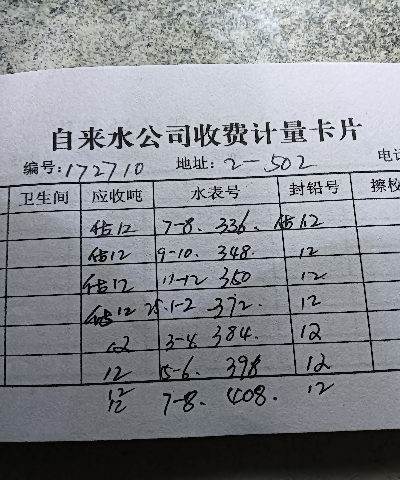 自来水公司收费计量卡片
编号:172710 地址:2-502 电话
卫生间 应收吨 水表号 封铅号 擦校
估12 7-8. 336. 估12
估12 9-10. 348. 12
估12 11-12 360 12
估12 25.1-2 372. 12
12 3-4 384. 12
12 5-6. 396 12
12 7-8. 408. 12